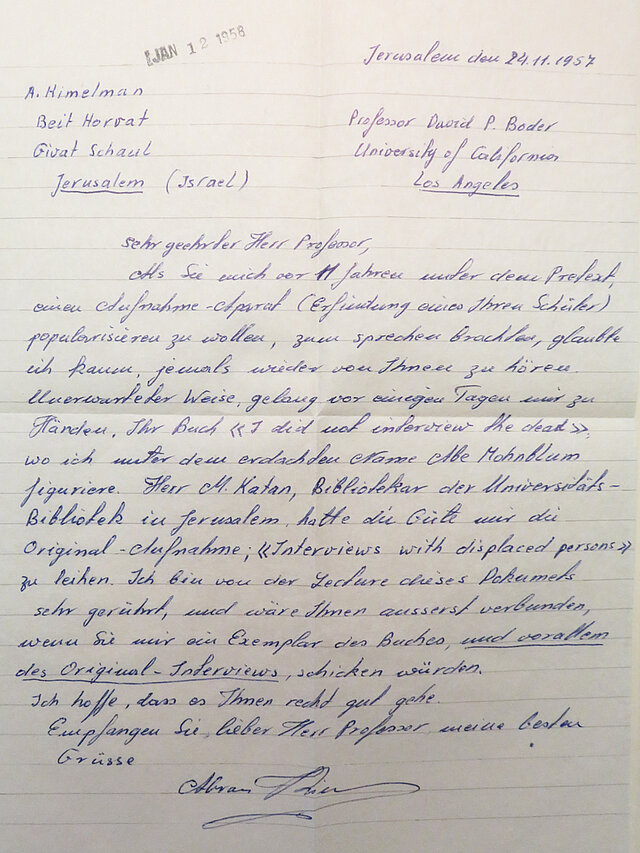 JAN 12 1958
Jerusalem den 24.11.1957
A. Himelman
Beit Horvat
Givat Schaul
Jerusalem (Israel)
Professor David P. Boder
University of California
Los Angeles
Sehr geehrter Herr Professor,
Als Sie mich vor 11 Jahren unter dem Pretext,
einen Aufnahme-Aparat (Erfindung eines Ihren Schüler)
popularisieren zu wollen, zum sprechen brachten, glaubte
ich kaum, jemals wieder von Ihnen zu hören.
Unerwarteter Weise, gelang vor einigen Tagen mir zu
Händen, Ihr Buch «I did not interview the dead»,
wo ich unter dem erdachten Name Abe Mohnblum
figuriere. Herr M. Katan, Bibliotekar der Universitäts-
Bibliotek in Jerusalem, hatte die Güte mir die
Original-Aufnahme; «Interviews with displaced persons»
zu leihen. Ich bin von der Lecture dieses Dokumets
sehr gerührt, und wäre Ihnen äusserst verbunden,
wenn Sie mir ein Exemplar des Buches, und vorallem
des Original-Interviews, schicken würden.
Ich hoffe, dass es Ihnen recht gut gehe.
Empfangen Sie, lieber Herr Professor, meine besten
Grüsse